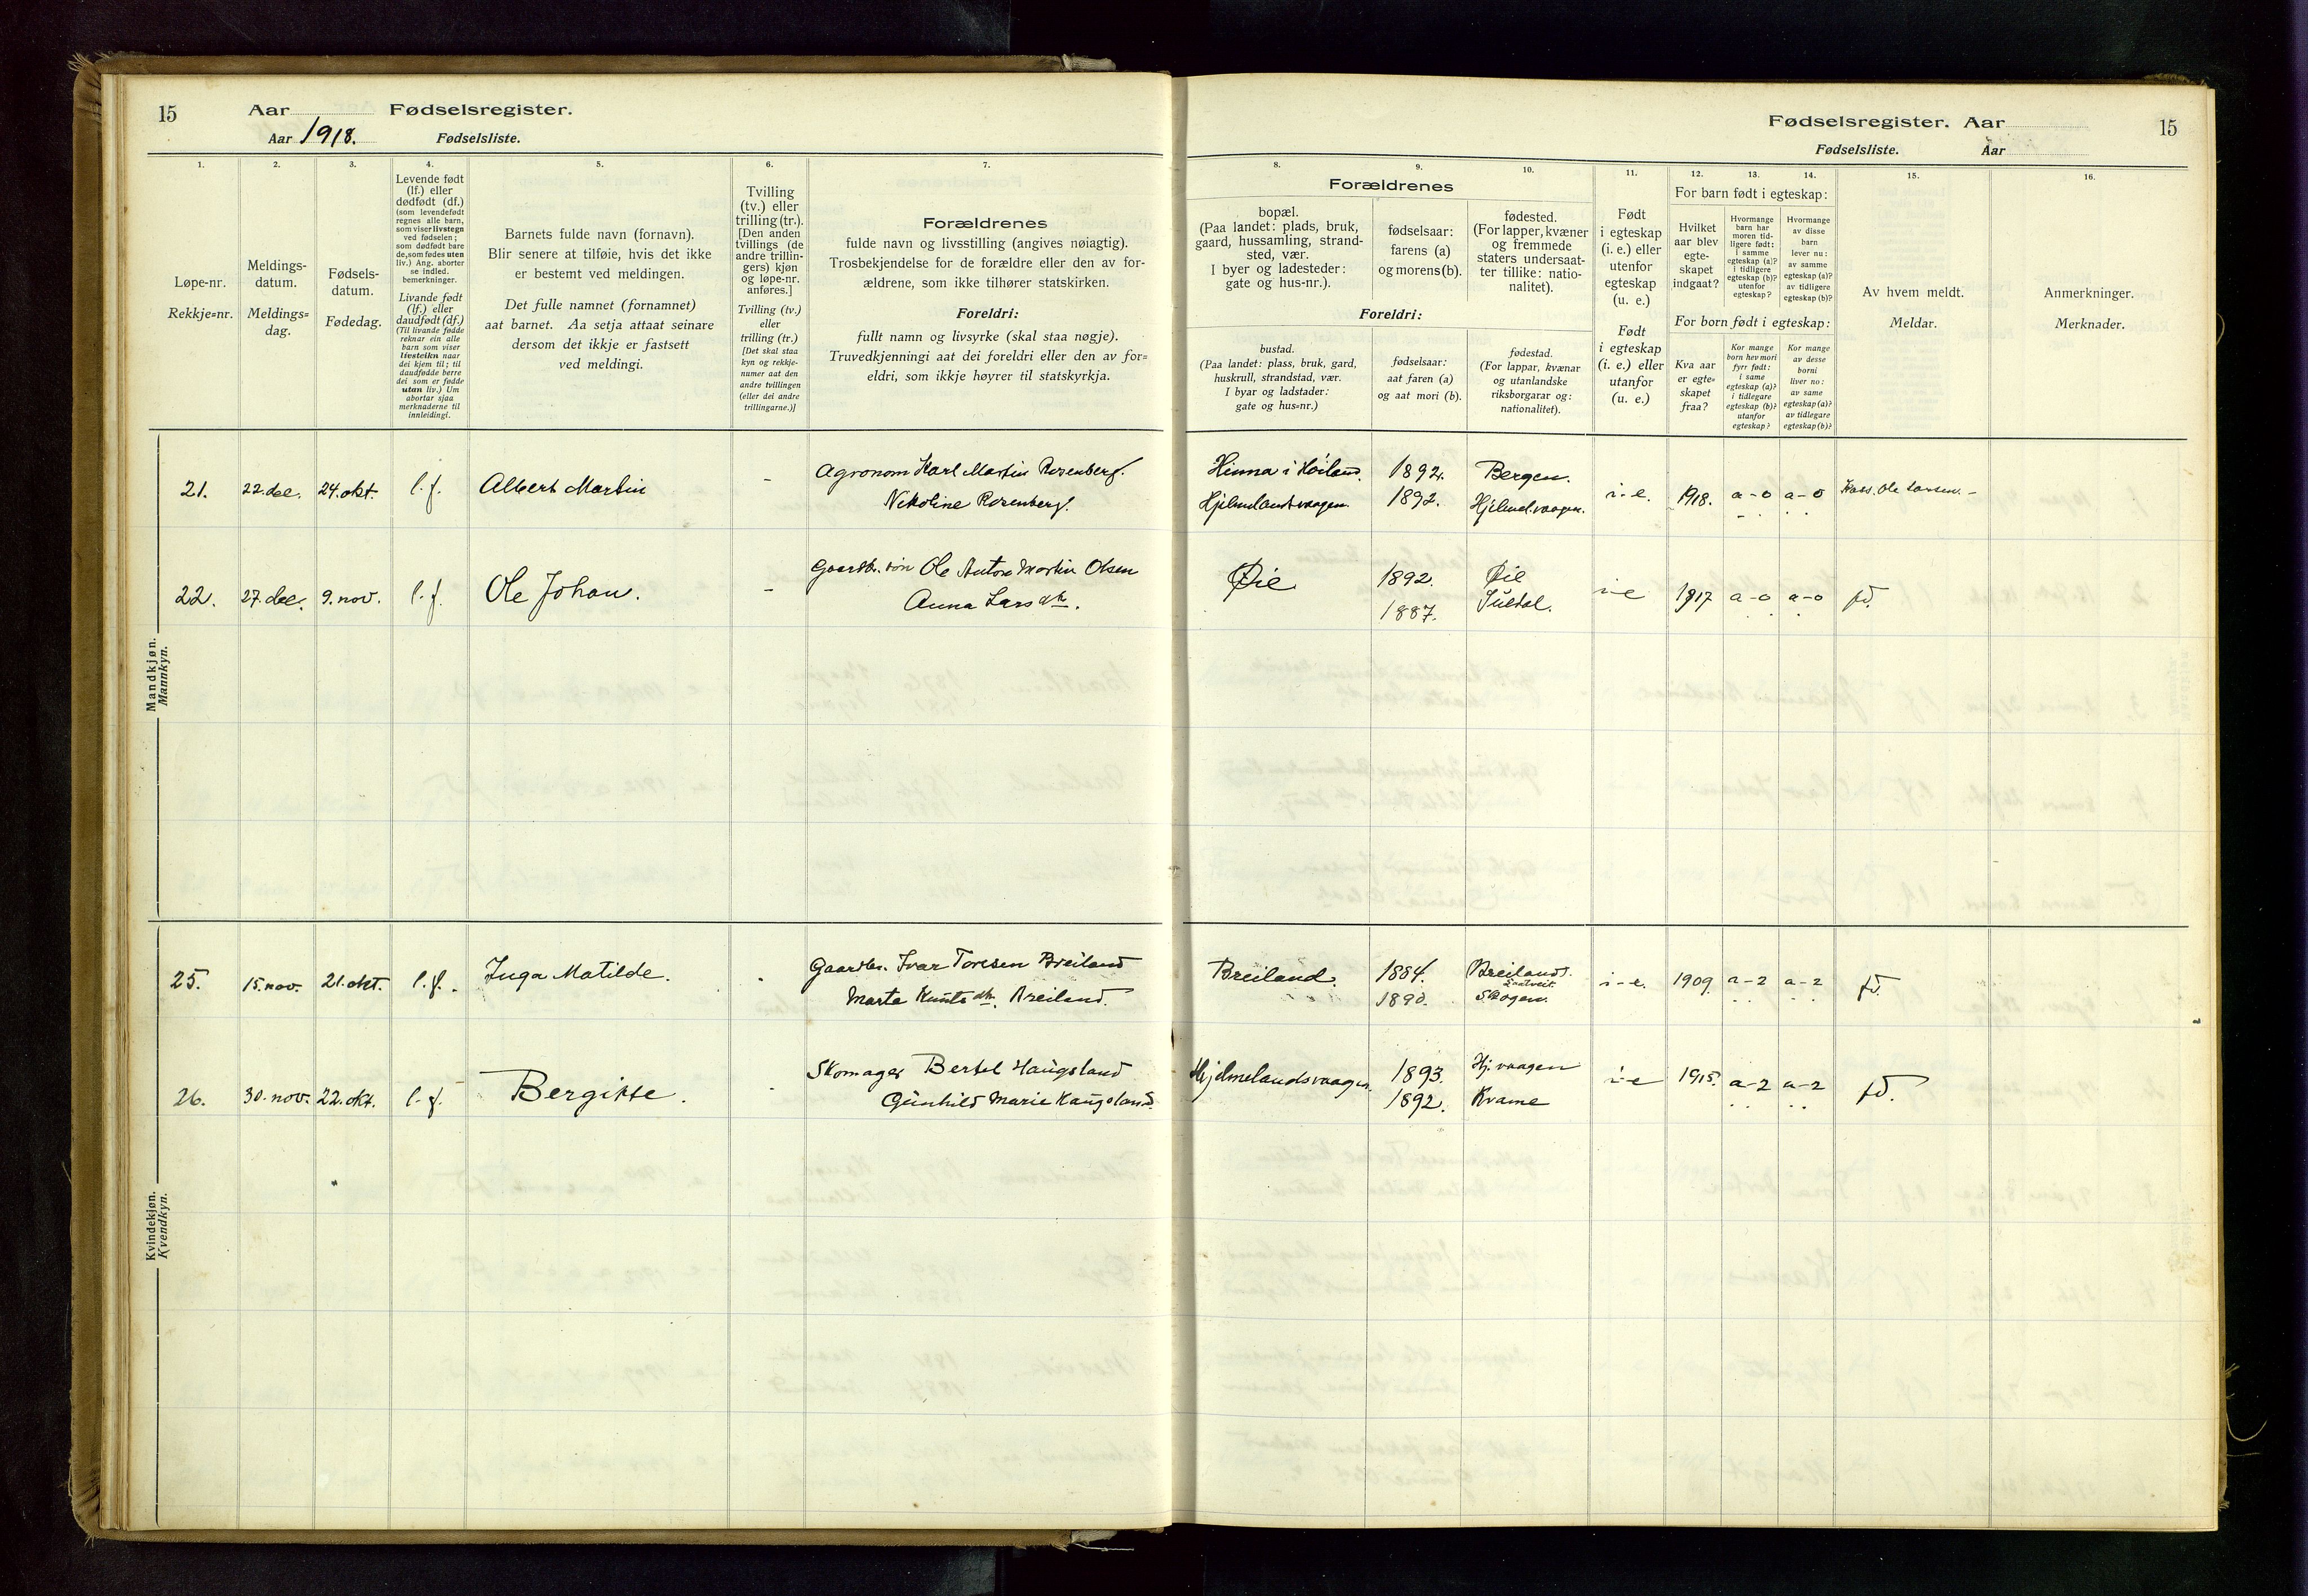 15 Aar Fødselsregister.
Aar 1918. Fødselsliste.
Fødselsregister. Aar 15
Fødselsliste. Aar
1. 2. 3. 4. 5. 6. 7.
Løpe-nr.
Rekkje=nr.
Meldings-
datum.
Meldings=
dag.
Fødsels-
datum.
Fødedag.
Levende født
(lf.) eller
dødfødt (df.)
(som levendefødt
regnes alle barn,
som viser livstegn
ved fødselen;
som dødfødt bare
de, som fødes uten
liv.) Ang. aborter
se indled.
bemerkninger.
Livande født
(lf.) eller
daudfødt (df.)
(Til livande fødde
reknar ein alle
barn som viser
livsteikn naar
dei kjem til; til
daudfødde berre
dei som er fødde
utan liv.) Um
abortar sjaa
merknaderne til
innleidingi.
Barnets fulde navn (fornavn).
Blir senere at tilføie, hvis det ikke
er bestemt ved meldingen.
Det fulle namnet (fornamnet)
aat barnet. Aa setja attaat seinare
dersom det ikkje er fastsett
ved meldingi.
Tvilling
(tv.) eller
trilling (tr.).
[Den anden
tvillings (de
andre trillin-
gers) kjøn
og løpe-nr.
anføres.]
Tvilling (tv.)
eller
trilling (tr.)
[Det skal staa
kyn og rekkje-
numer aat den
andre tvillingen
(eller dei andre
trillingarne.)]
Forældrenes
fulde navn og livsstilling (angives nøiagtig).
Trosbekjendelse for de forældre eller den av for-
ældrene, som ikke tilhører statskirken.
Foreldri:
fullt namn og livsyrke (skal staa nøgje).
Truvedkjenningi aat dei foreldri eller den av for=
eldri, som ikkje høyrer til statskyrkja.
8. 9. 10. 11. 12. 13. 14. 15. 16.
Forældrenes
bopæl.
(Paa landet: plads, bruk,
gaard, hussamling, strand-
sted, vær.
I byer og ladesteder:
gate og hus-nr.).
fødselsaar:
farens (a)
og morens (b).
fødested.
(For lapper, kvæner
og fremmede
staters undersaat-
ter tillike: natio-
nalitet).
Foreldri:
bustad.
(Paa landet: plass, bruk, gard,
huskrull, strandstad, vær.
I byar og ladstader:
gate og hus=nr.)
fødselsaar:
aat faren (a)
og aat mori (b).
fødestad.
(For lappar, kvænar
og utanlandske
riksborgarar og:
nationalitet).
Født
i egteskap
(i. e.) eller
utenfor
egteskap
(u. e.)
Født
i egteskap
(i. e.) eller
utanfor
(u. e.)
For barn født i egteskap:
Hvilket
aar blev
egte-
skapet
indgaat?
Hvormange
barn har
moren tid-
ligere født:
i samme
egteskap (a)?
i tidligere
egteskap (b)?
utenfor
egteskap?
Hvormange
av disse
barn
lever nu:
av samme
egteskap (a)?
av tidligere
egteskap (b)?
For born født i egteskap:
Kva aar
er egte=
skapet
fraa?
Kor mange
born hev mori
fyrr født:
i same
egteskap (a)?
i tidlegare
egteskap (b)?
utanfor
egteskap?
Kor mange
av desse
borni
liver no:
av same
egteskap (a)?
av tidlegare
egteskap (b)?
Av hvem meldt.
Meldar.
Anmerkninger.
Merknader.
Mandkjøn.
Mannkyn.
21. 22. dec. 24. okt. l. f. Albert Martin - Agronom Karl Martin Rosenberg. Hinna i Høiland. 1892. Bergen. i-e. 1918. a-o a-o Larsen.
Nikoline Rosenberg. Hjelmelandsvaagen. 1892. Hjelmel.vaagen.
22. 27. dec. 9. nov. l. f. Ole Johan. - Gaardbr. søn Ole Anton Martin Olsen Øie 1892. Øie i-e 1917 a-o a-o fd.
Anna Larsdtr. 1887. Suldal.
Kvindekjøn.
Kvendkyn.
25. 15. nov. 21. okt. l. f. Inga Matilde. Gaardbr. Ivar Toresen Breiland Breiland. 1884. Breiland. i-e. 1909. a-2 a-2 fd.
Marta Knutsdtr. Breiland. 1890. Skogen.
26. 30. nov. 22. okt. l. f. Bergitte. Skomager Bertel Haugsland Hjelmelandsvaagen. 1893. Hj. vaagen i-e 1915. a-2 a-2 fd.
Gunhild Marie Haugsland. 1892. Kvame